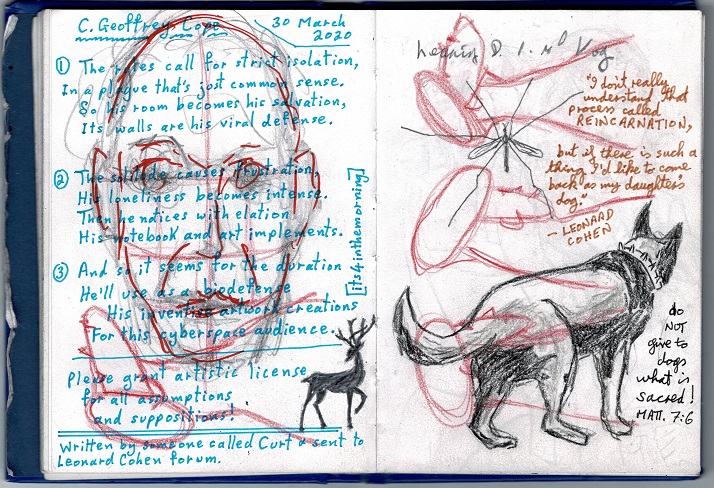 C. Geoffrey Cope
30 March
2020
① The rules call for strict isolation,
In a plague that's just common sense.
So his room becomes his salvation,
Its walls are his viral defense.
② The solitude causes frustration,
His loneliness becomes intense.
Then he notices with elation
His notebook and art implements.
③ And so it seems for the duration
He'll use as a biodefense
His inventive artwork creations
For this cyberspace audience.
[its4inthemorning]
Please grant artistic license
for all assumptions
and suppositions!
Written by someone called Curt & sent to
Leonard Cohen forum.
"I don't really
understand that
process called
REINCARNATION,
but if there is such a
thing I'd like to come
back as my daughter's
dog."
- LEONARD
COHEN
do
NOT
give to
dogs
what is
sacred!
MATT. 7:6